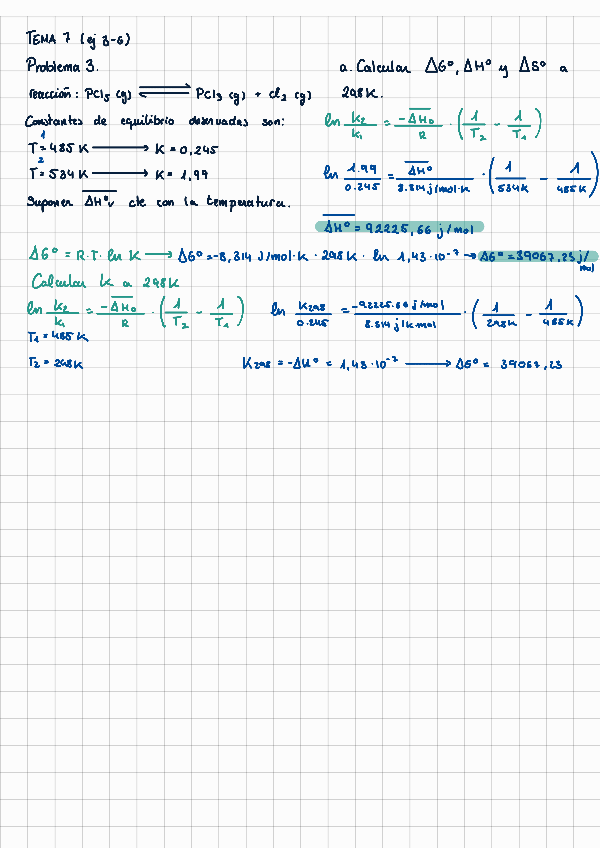 TEMA 7 (ej 3-6)
Problema 3.
reacción: PCl5 (g) ⇌ PCl3 (g) + Cl2 (g)
Constantes de equilibrio observadas son:
T1 = 485 K → K = 0,245
T2 = 534 K → K = 1,99
Suponer ΔH°v cte con la temperatura.
a. Calcular ΔG°, ΔH° y ΔS° a
298K.
ln K2/K1 = -ΔH0/R · (1/T2 - 1/T1)
ln 1.99/0.245 = ΔH°/8.314 j/mol·K · (1/534K - 1/485K)
ΔH° = 92225,66 j/mol
ΔG° = R·T· ln K → ΔG° = -8,314 J/mol·K · 298K · ln 1,43·10⁻⁷ → ΔG° = 39067,23 j/mol
Calcular K a 298K
ln K2/K1 = -ΔH0/R · (1/T2 - 1/T1) ln K298/0.245 = -92225.66 j/mol / 8.314 j/k·mol · (1/298K - 1/485K)
T1 = 485 K
T2 = 298K K298 = -ΔU° = 1,43·10⁻⁷ → ΔG° = 39067,23